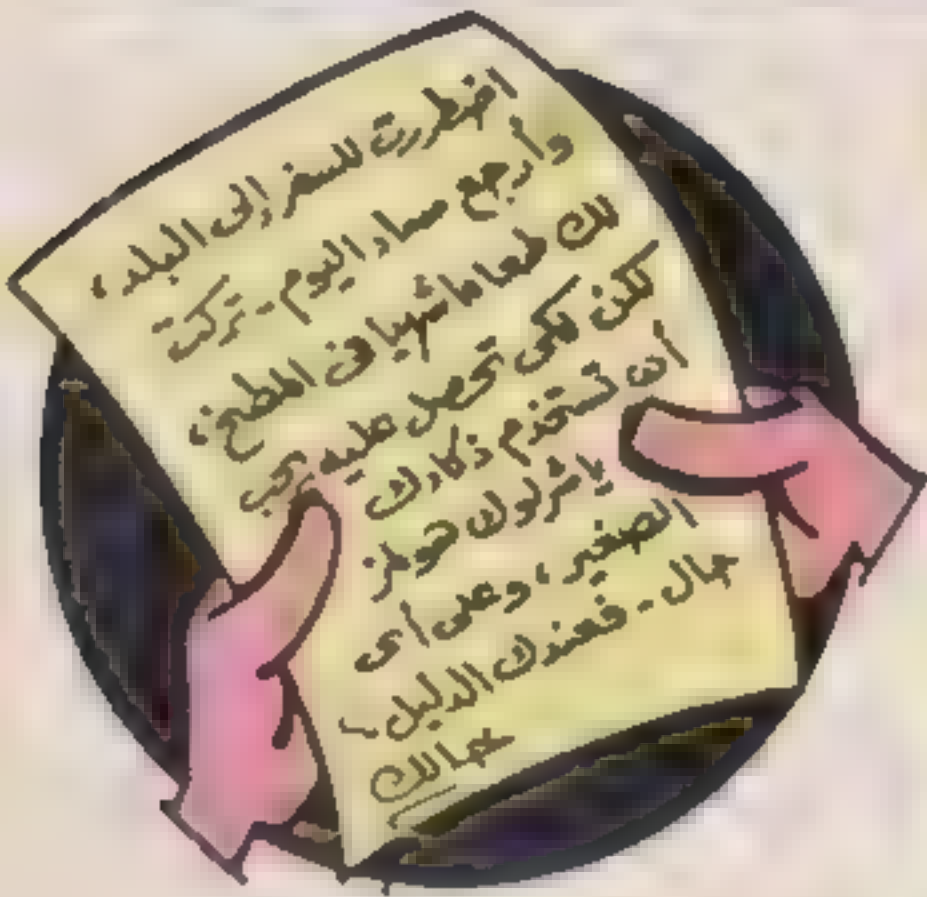 اضطررت للسفر إلى البلد،
وأرجع مساء اليوم - تركت
لك طعاما شهيا فى المطبخ،
لكن لكى تحصل عليه يجب
أن تستخدم ذكاءك
يا شرلوك هولمز
الصغير، وعلى أى
حال - فعندك الدليل -
خالك